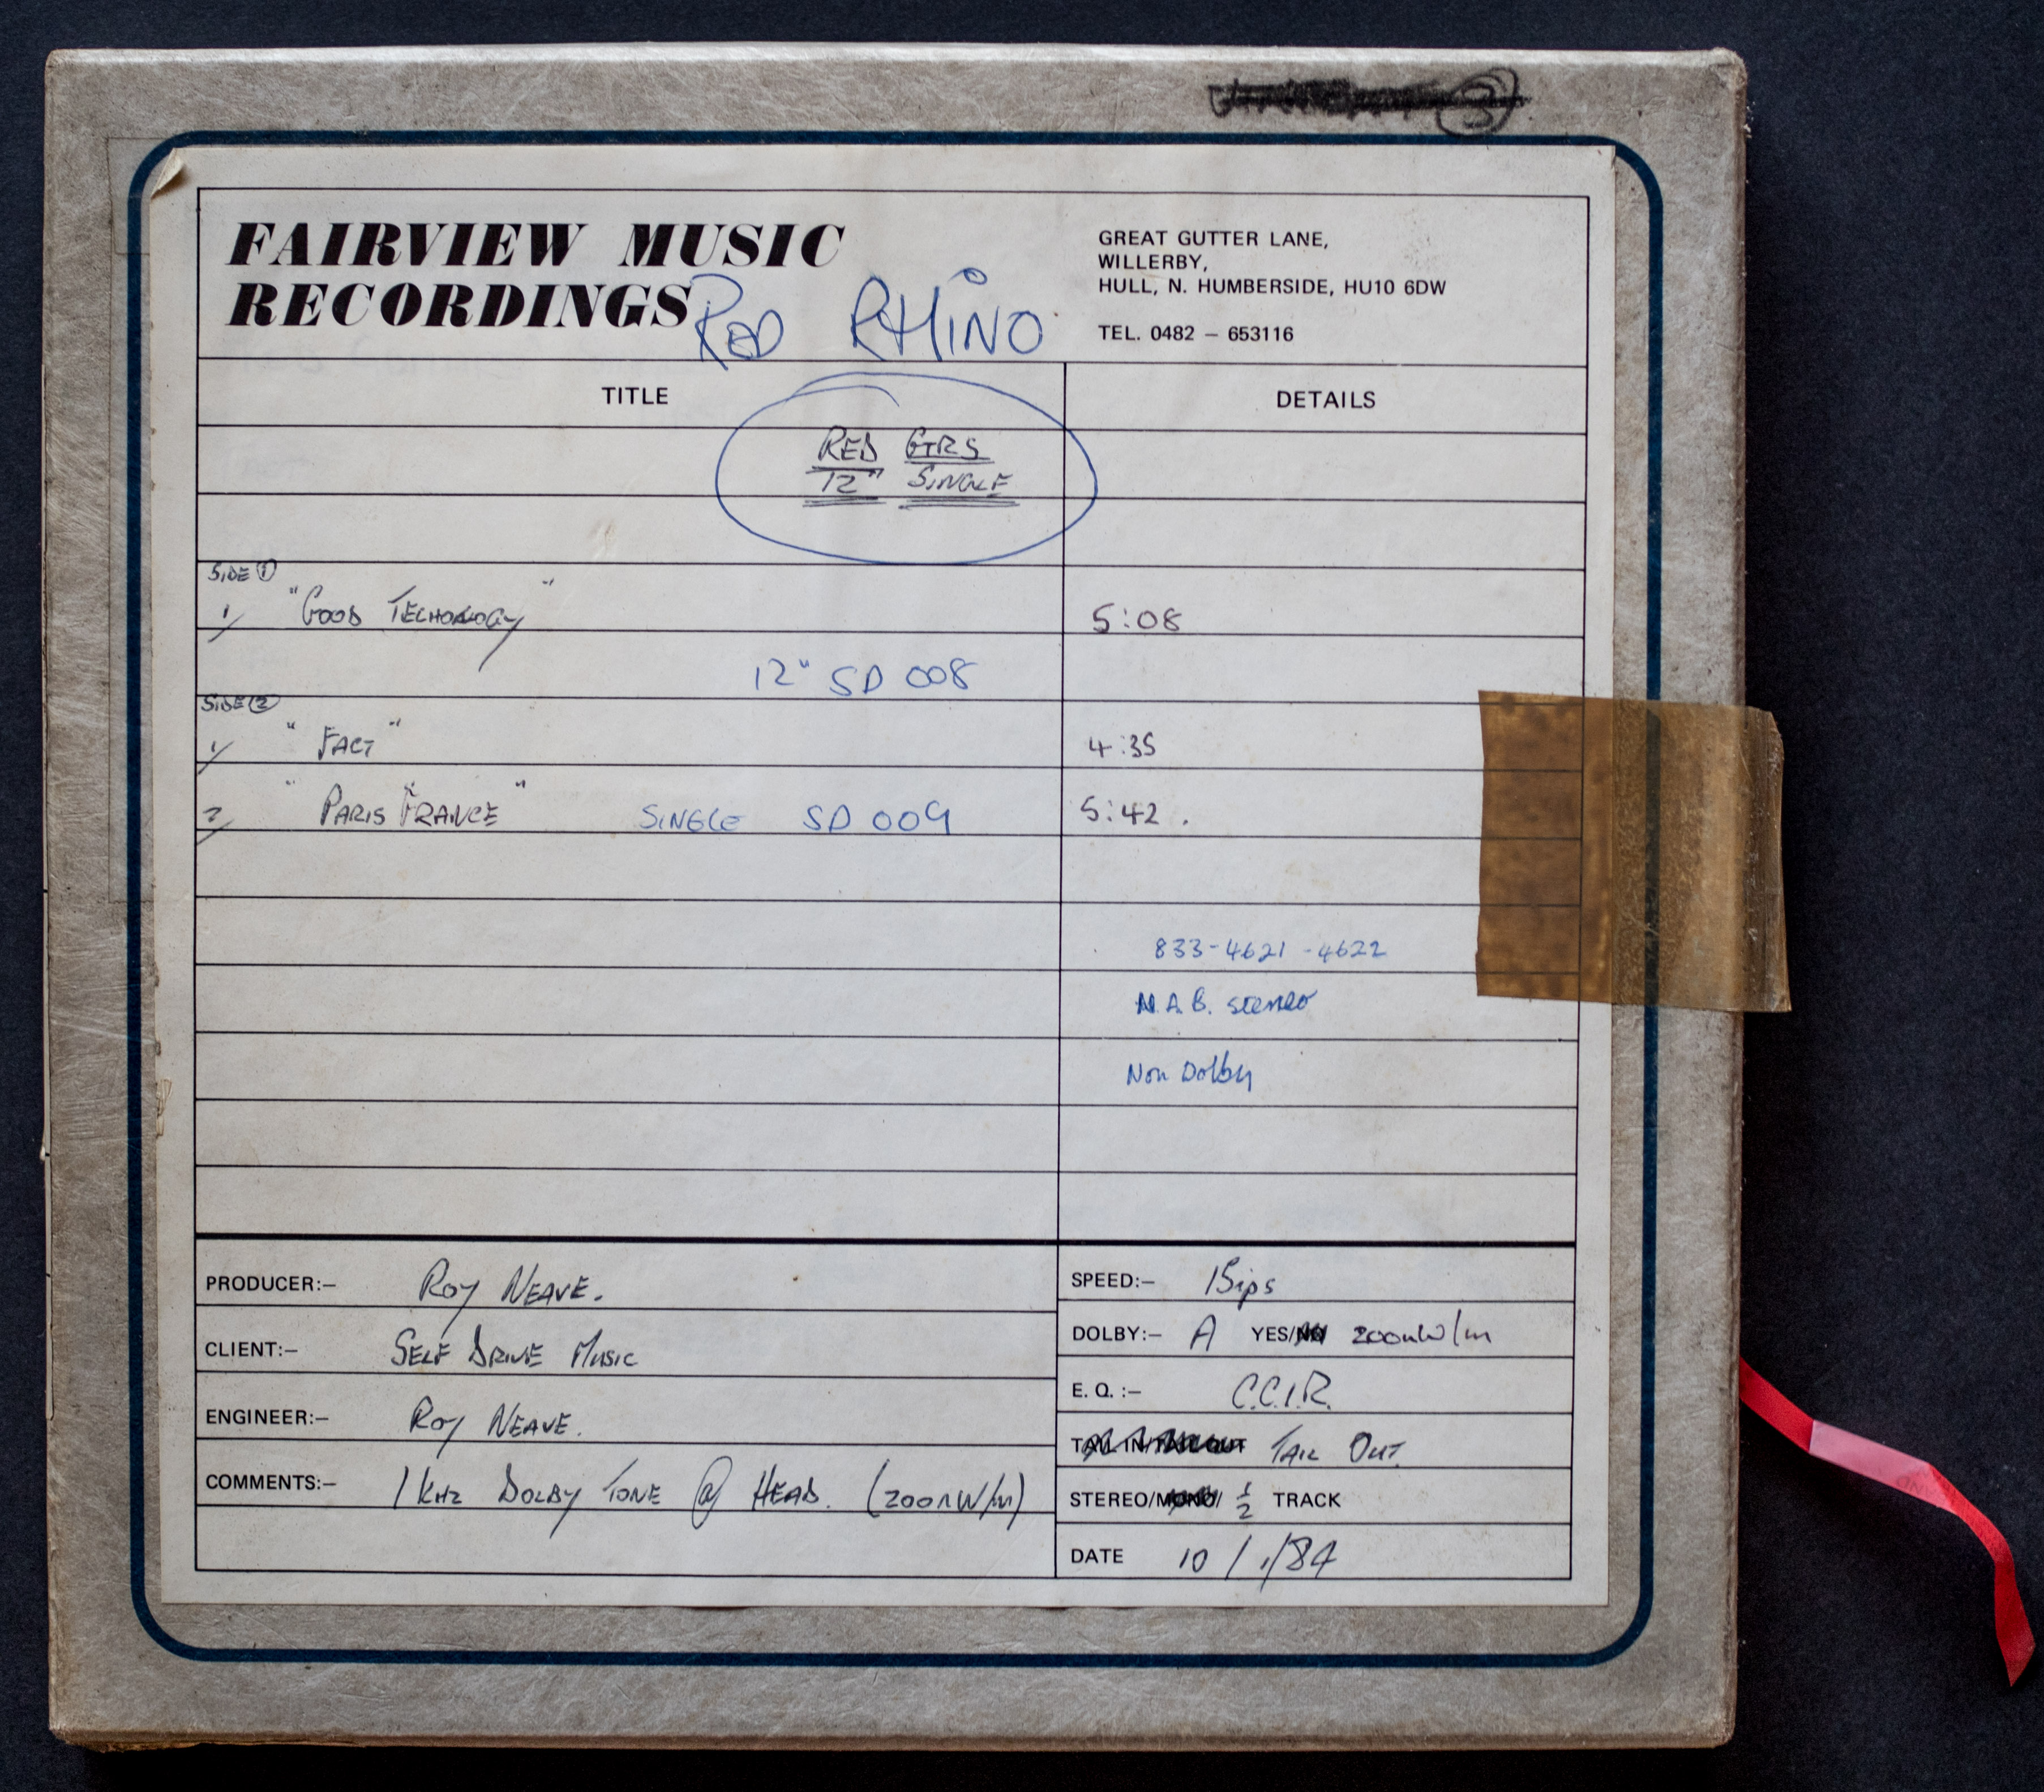 3
FAIRVIEW MUSIC
RECORDINGS
RED RHINO
GREAT GUTTER LANE,
WILLERBY,
HULL, N. HUMBERSIDE, HU10 6DW
TEL. 0482 – 653116
TITLE
DETAILS
RED GTRS
12" SINGLE
SIDE 1
1/ "GOOD TECHONOLOGY" 5:08
12" SD 008
SIDE 2
1/ "FACT" 4:35
2/ "PARIS FRANCE" SINGLE SD 009 5:42.
833-4621-4622
N.A.B. stereo
Non Dolby
PRODUCER:– ROY NEAVE.
CLIENT:– SELF DRIVE MUSIC
ENGINEER:– ROY NEAVE.
COMMENTS:– 1 KHz DOLBY TONE @ HEAD. (200nW/m)
SPEED:– 15ips
DOLBY:– A YES/NO 200nW/m
E. Q. :– C.C.I.R.
TAIL IN/TAIL OUT TAIL OUT.
STEREO/MONO/ 1/2 TRACK
DATE 10/1/84